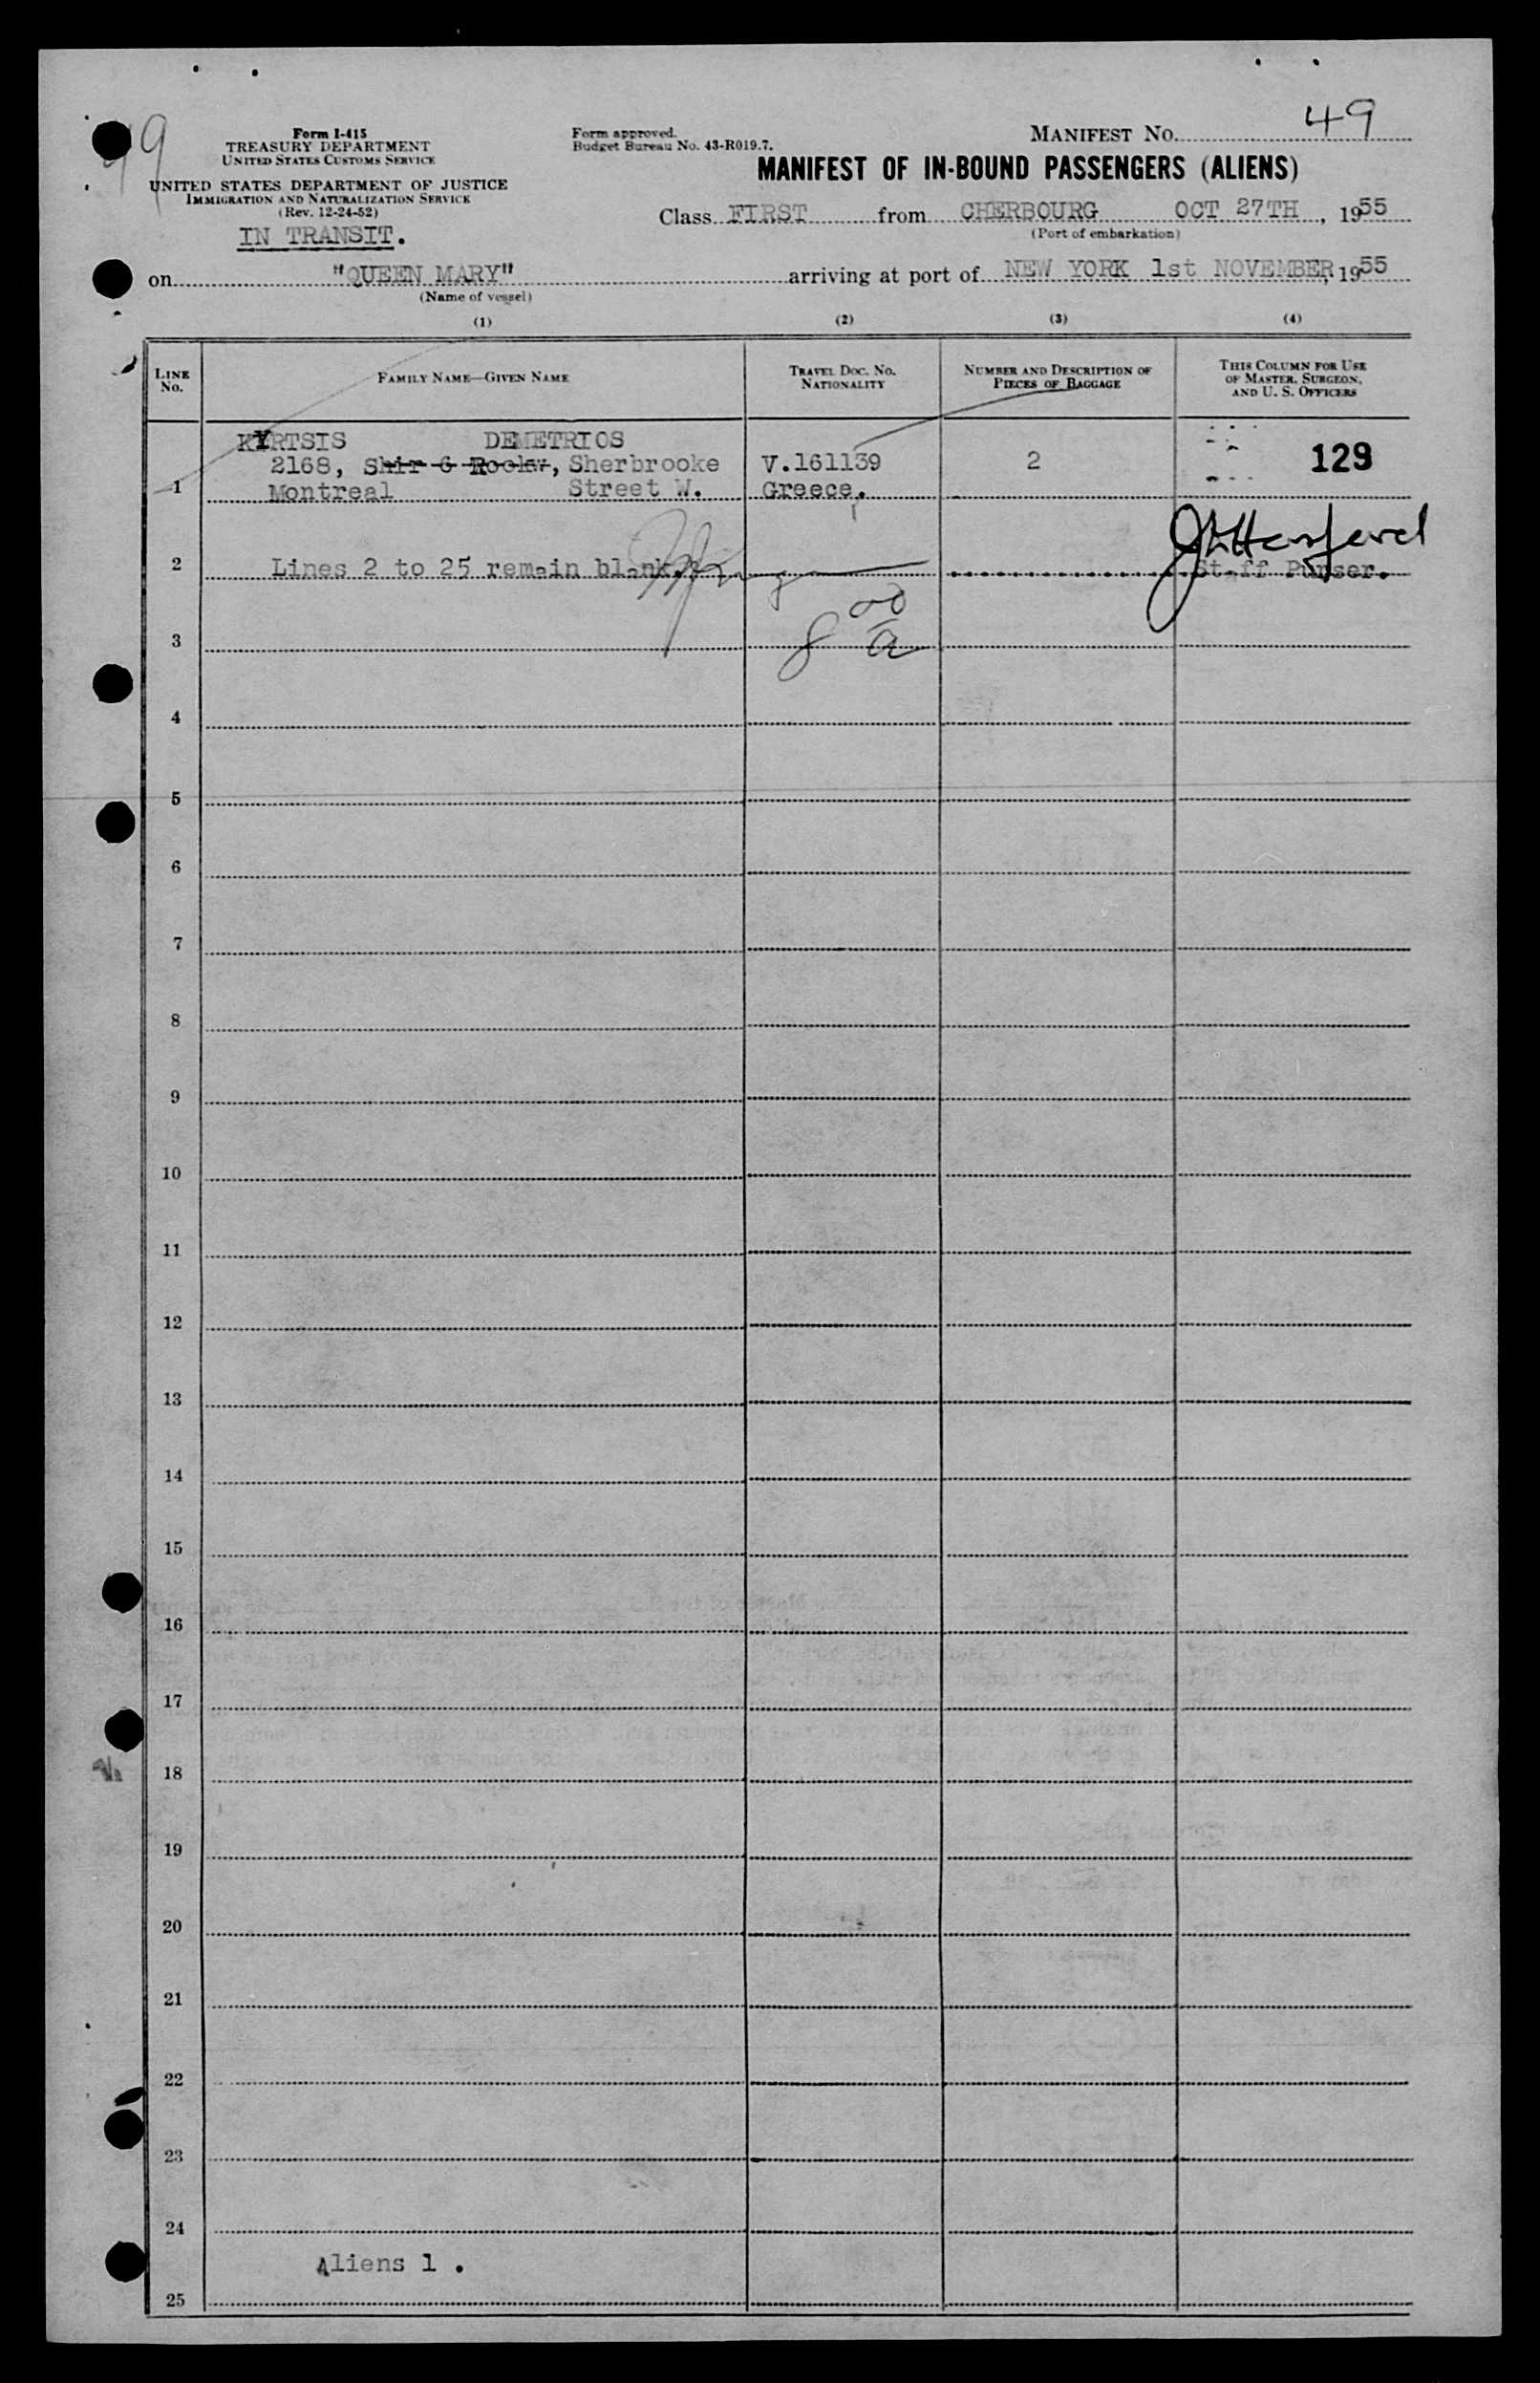 49
Form I-415
TREASURY DEPARTMENT
UNITED STATES CUSTOMS SERVICE
UNITED STATES DEPARTMENT OF JUSTICE
IMMIGRATION AND NATURALIZATION SERVICE
(Rev. 12-24-52)
IN TRANSIT.
Form approved.
Budget Bureau No. 43-R019.7.
MANIFEST NO. 49
MANIFEST OF IN-BOUND PASSENGERS (ALIENS)
Class FIRST from CHERBOURG OCT 27TH, 1955
(Port of embarkation)
on "QUEEN MARY" arriving at port of NEW YORK 1st NOVEMBER, 1955
(Name of vessel)
(1) (2) (3) (4)
LINE NO.
FAMILY NAME—GIVEN NAME
TRAVEL DOC. NO. NATIONALITY
NUMBER AND DESCRIPTION OF PIECES OF BAGGAGE
THIS COLUMN FOR USE OF MASTER, SURGEON, AND U. S. OFFICERS
KYRTSIS DEMETRIOS
2168, Sherbrooke V.161139 2 129
1 Montreal Street W. Greece.
2 Lines 2 to 25 remain blank. Staff Purser.
3
4
5
6
7
8
9
10
11
12
13
14
15
16
17
18
19
20
21
22
23
24
Aliens 1 .
25